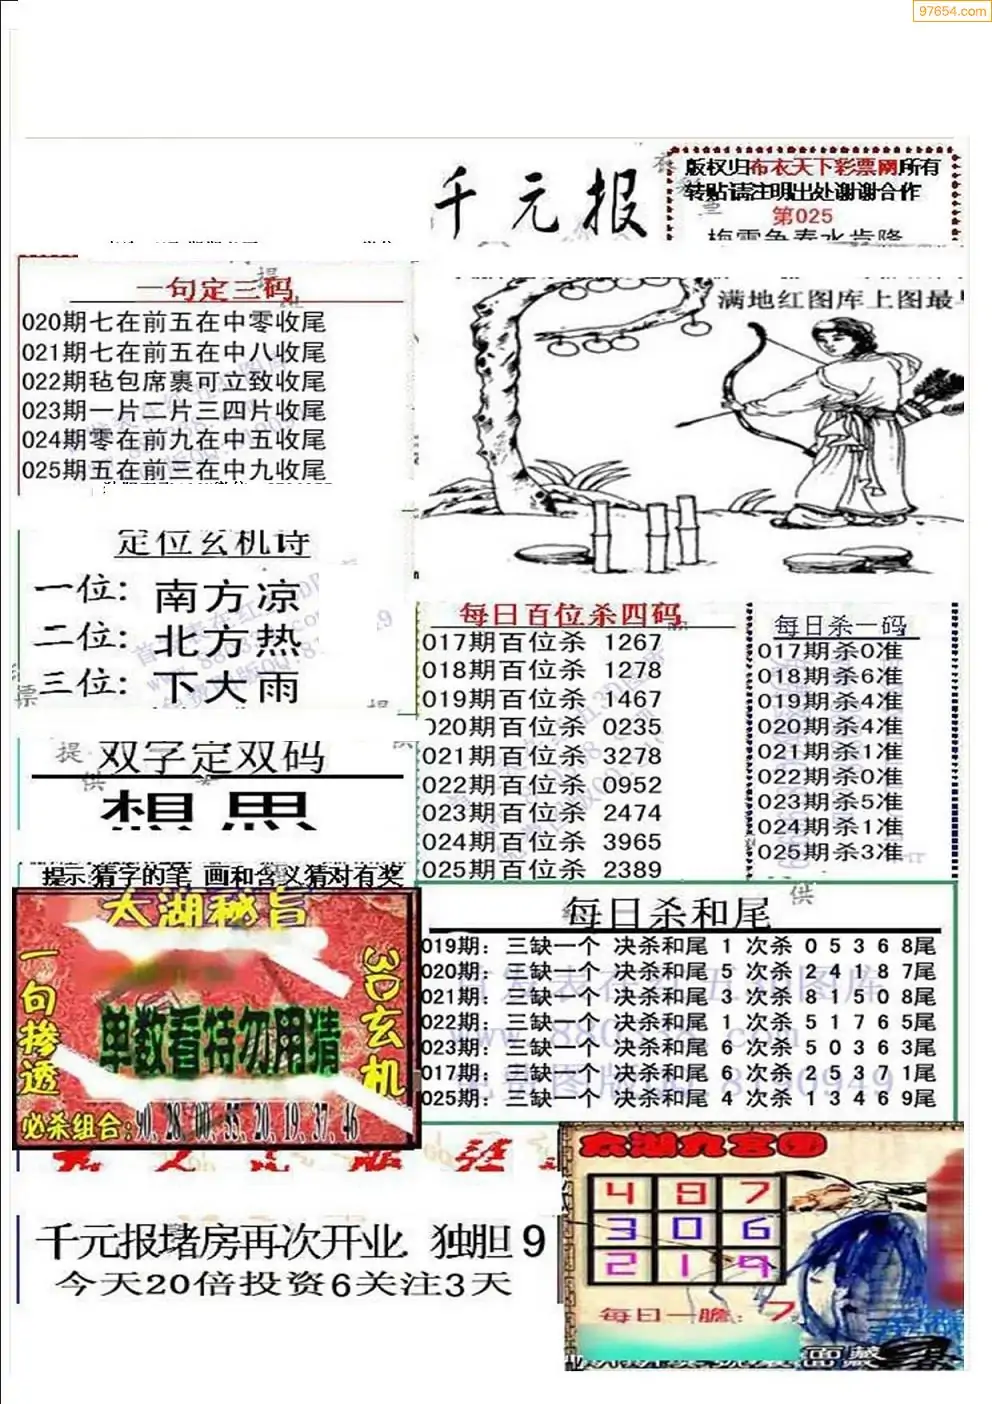 97654.com
千元报
版权归布衣天下彩票网所有
转贴请注明出处谢谢合作
第025
一句定三码
020期七在前五在中零收尾
021期七在前五在中八收尾
022期毡包席裹可立致收尾
023期一片二片三四片收尾
024期零在前九在中五收尾
025期五在前三在中九收尾
满地红图库上图最
定位玄机诗
一位：南方凉
二位：北方热
三位：下大雨
双字定双码
想思
提示猜字的笔 画和含义猜对有奖
每日百位杀四码
017期百位杀 1267
018期百位杀 1278
019期百位杀 1467
020期百位杀 0235
021期百位杀 3278
022期百位杀 0952
023期百位杀 2474
024期百位杀 3965
025期百位杀 2389
每日杀一码
017期杀0准
018期杀6准
019期杀4准
020期杀4准
021期杀1准
022期杀0准
023期杀5准
024期杀1准
025期杀3准
太湖秘旨
一句掺透
单数看特勿用猜
3D玄机
必杀组合:90,28,00,55,20,19,37,46
每日杀和尾
019期：三缺一个 决杀和尾 1 次杀 0 5 3 6 8尾
020期：三缺一个 决杀和尾 5 次杀 2 4 1 8 7尾
021期：三缺一个 决杀和尾 3 次杀 8 1 5 0 8尾
022期：三缺一个 决杀和尾 1 次杀 5 1 7 6 5尾
023期：三缺一个 决杀和尾 6 次杀 5 0 3 6 3尾
017期：三缺一个 决杀和尾 6 次杀 2 5 3 7 1尾
025期：三缺一个 决杀和尾 4 次杀 1 3 4 6 9尾
千元报堵房再次开业. 独胆 9
今天20倍投资6关注3天
太湖九宫图
4 8 7
3 0 6
2 1 9
每日一胆：7